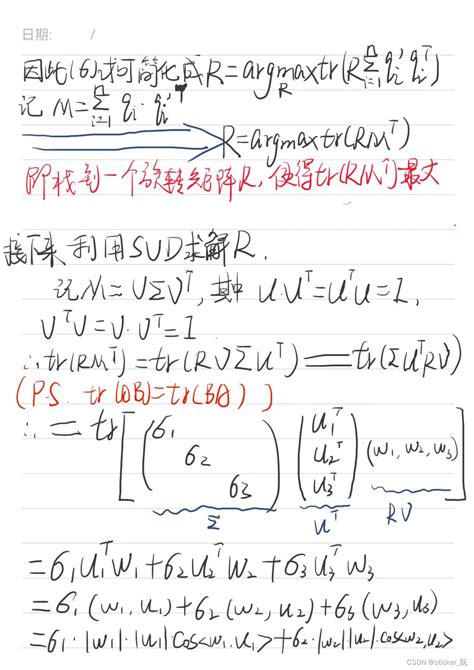 日期: /
因此(6)式可简化成R=argmax_R tr(R∑_{i=1}^{n} q_i' q_i^T)
记 M=∑_{i=1}^{n} q_i·q_i'^T
R=argmax tr(RM^T)
即找到一个旋转矩阵R,使得tr(RM^T)最大
接下来利用SVD求解R.
记M=UΣV^T,其中 U·U^T=U^TU=1,
V^TV=V·V^T=1
∴tr(RM^T)=tr(RVΣU^T)=tr(ΣU^TRV)
(P.S. tr(AB)=tr(BA))
∴=tr[(σ1 σ2 σ3) (u1^T u2^T u3^T) (w1,w2,w3)]
Σ U^T RV
=σ1u1^Tw1+σ2u2^Tw2+σ3u3^Tw3
=σ1(w1,u1)+σ2(w2,u2)+σ3(w3,u3)
=σ1·|w1|·|u1|cos<w1,u1>+σ2·|w2||u2|·cos<w2,u2>
CSDN @sticker_阮